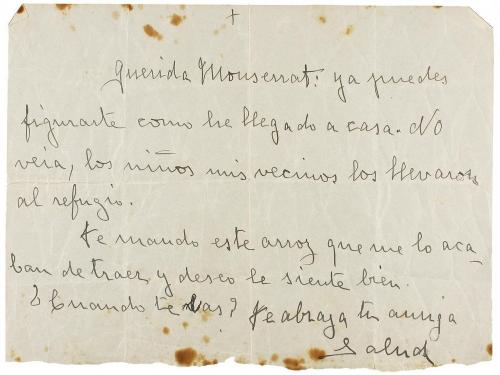 +
Querida Monserrat: ya puedes
figurarte como he llegado a casa. No
veia, los niños mis vecinos los llevaron
al refugio.
Te mando este arroz que me lo aca-
ban de traer y deseo le siente bien.
¿Cuando te vas? Te abraza tu amiga
Salud